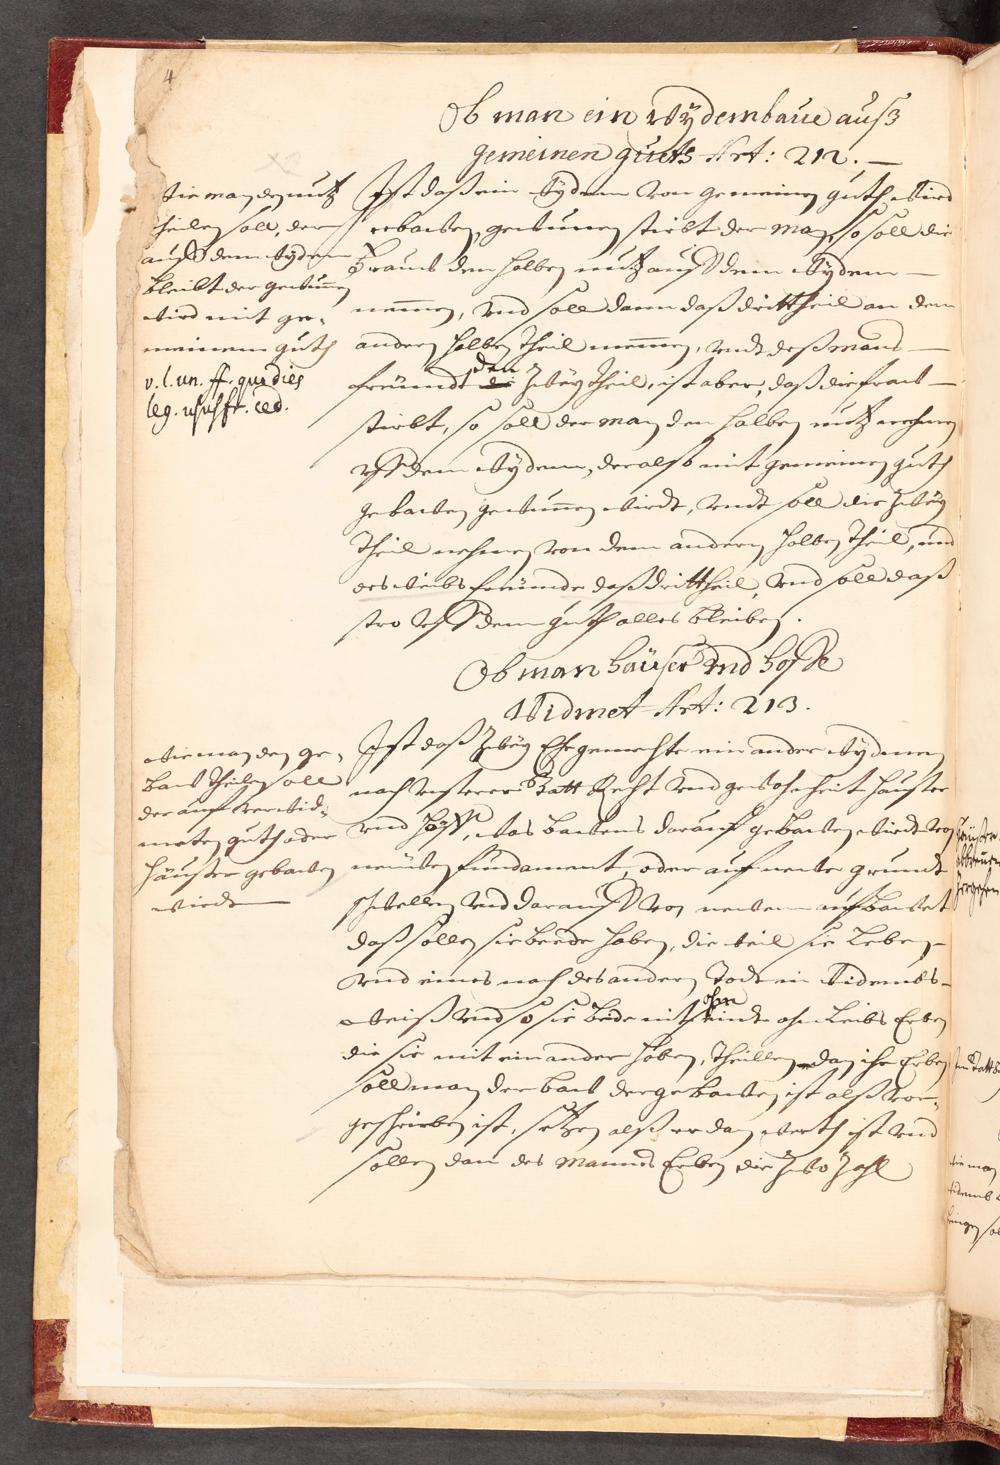 4
Ob man ein Wÿdembaue auß
gemeinen guets Art: 212. —
Wie man den nutz
theilen soll, der
auß dem Wÿdem
bleibt der gewunnen
wird mit ge-
meinem guth
v. l. un. ff. qua dies
leg. ususfr. ced.
Ist daß ein Wÿdem von gemeinen guth wird
erbawen, gewunnen stirbt der man, so soll die
Frauw den halben nutz auß dem Wÿdem —
nemmen, Vnd soll dann daß drittheil an dem
andern halben Theil nemmen, vndt deß mans —
freündt den Zweÿ theil, ist aber, daß die fraw —
stirbt, so soll der man den halben nutz nehmen
vff dem Wÿdem, der also mit gemeinen guth
gebawen gewunnen wirdt, vndt soll die Zweÿ
Theil nehmen von dem andern halben Theil, und
des weibs freünde daß drittheil, Vnd soll daß
stro vff dem guth alles bleiben.
Ob man häuser Vnd hoffe
Widmet Art: 213.
Wie man den ge-
baw theilen soll
der auf verwid-
meten guth oder
häusser gebawen
wirdt —
Ist daß Zweÿ Ehegemechte einander Wÿdmen
nach vnserer Statt Recht Vnd gewohnheit häusser
Vnd höff, was bawens darauf gebawen wirdt von
neüwen fundament, oder auf newe grundt
schwellen Vnd darauff von newem aufbawet
daß sollen sie beede haben, die weil sie Leben —
Vnd eines nach des andern Todt in Widembs —
weiß Vnd so sie bede mit ohn kindt ohn Leibs Erben
die sie mit einander haben, theillen dan ihr Erben
soll man den baw der gebawen ist alß vor-
geschrieben ist, setzen alß er dan werth ist Vnd
sollen dan des Manns Erben die Zwo Zahl